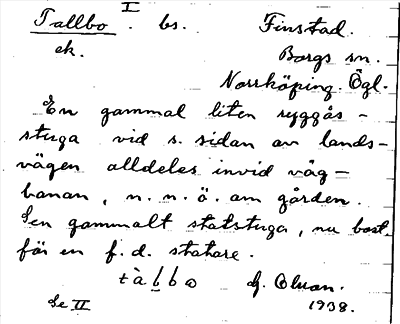 I
Tallbo. bs. Finstad.
ek. Borgs sn.
Norrköping. Ögl.
En gammal liten ryggås-
stuga vid s. sidan av lands-
vägen alldeles invid väg-
banan, n. n. ö. om gården.
En gammalt statstuga, nu bost.
för en f. d. statare.
tàbbo
Se II 1938.